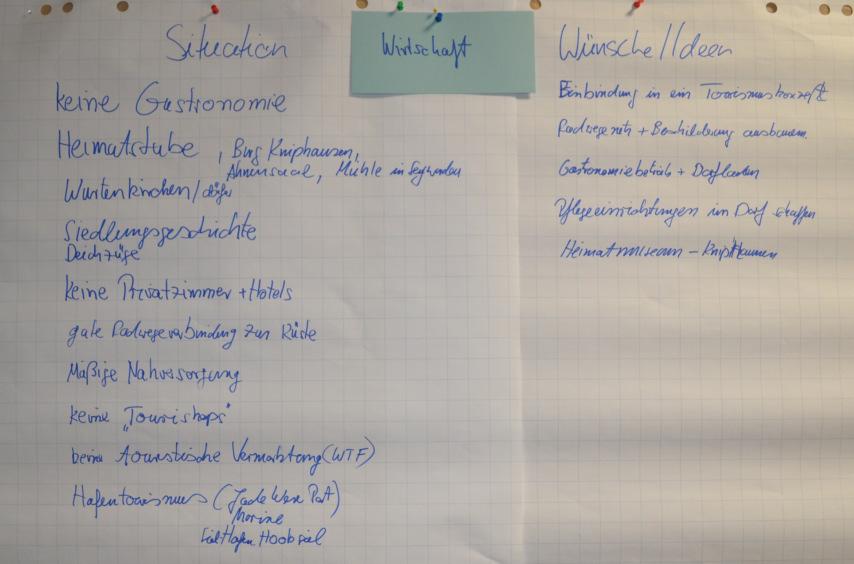 Situation
keine Gastronomie
Heimatstube, Burg Kniphausen,
Ahnensaal, Mühle in Sengwarden
Wurtenkirchen/dörfer
Siedlungsgeschichte
Deichzüge
keine Privatzimmer + Hotels
gute Radwegeverbindung zur Küste
Mäßige Nahversorgung
keine "Tourishops"
keine Touristische Vermarktung (WTF)
Hafentourismus (Jade Weser Port)
Marine
Hooksiel
Wirtschaft
Wünsche/Ideen
Einbindung in ein Tourismuskonzept
Radwegenetz + Beschilderung ausbauen
Gastronomiebetrieb + Dorfladen
Pflegeeinrichtungen im Dorf schaffen
Heimatmuseum - Kniphausen